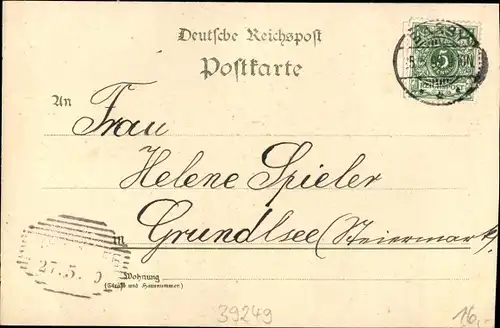 Deutsche Reichspost
Postkarte
5
An
Frau
Helene Spieler
in
Grundlsee (Steiermark)
27.5.
Wohnung
(Straße und Hausnummer)
39249
16,-